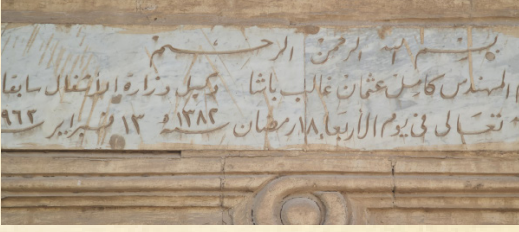 بسم الله الرحمن الرحيم
المهندس كامل عثمان غالب باشا وكيل وزارة الأشغال سابقا
تعالى في يوم الأربعاء ١٨ رمضان سنة ١٣٨٢ ١٣ فبراير سنة